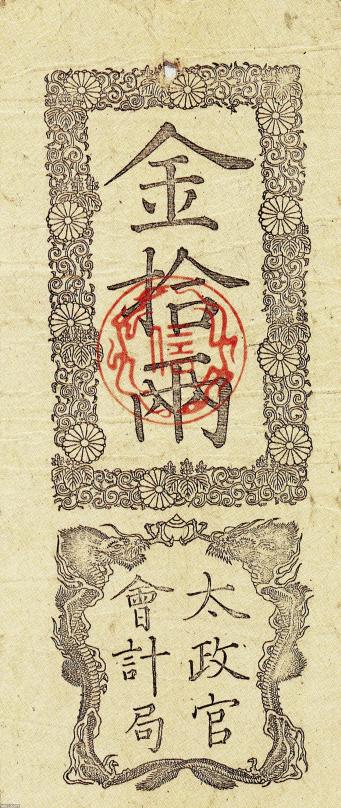 金拾兩
太政官
會計局